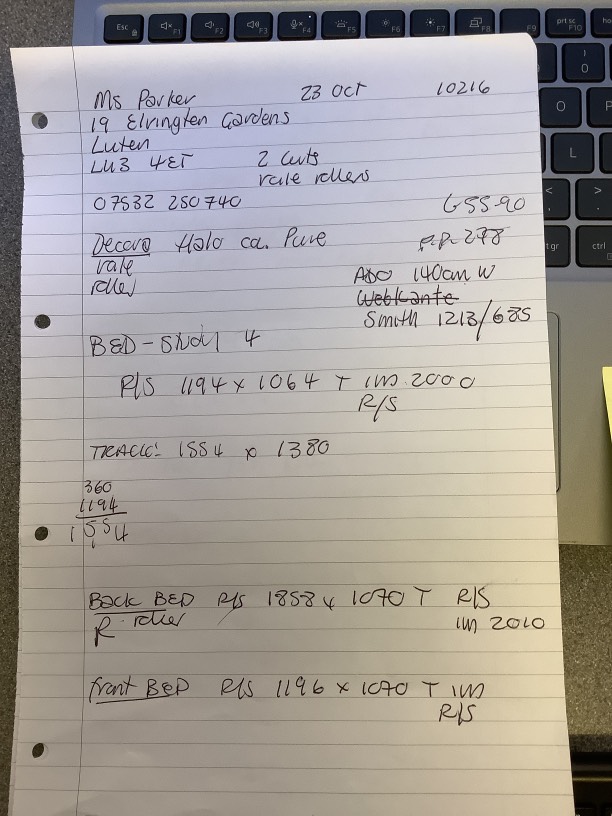 Ms Parker 23 Oct 10216
19 Elvington Gardens
Luten
LU3 4ET 2 Cuts
vale rollers
07532 250740
655-90
Decora Halo ca. Pure
p.p. 278
vale
roller
ADO 140cm W
Smith 1213/685
BED - Study 4
R/S 1194 x 1064 T 1m 2000
R/S
TRACK: 1554 x 1380
360
1194
1554
1
Back BED R/S 1858 x 1070 T R/S
R. roller 1m 2010
front BED R/S 1196 x 1070 T 1m
R/S
Esc F1 F2 F3 F4 F5 F6 F7 F8 F9 prt sc F10
)
0
O P
L
< >
alt gr ctrl